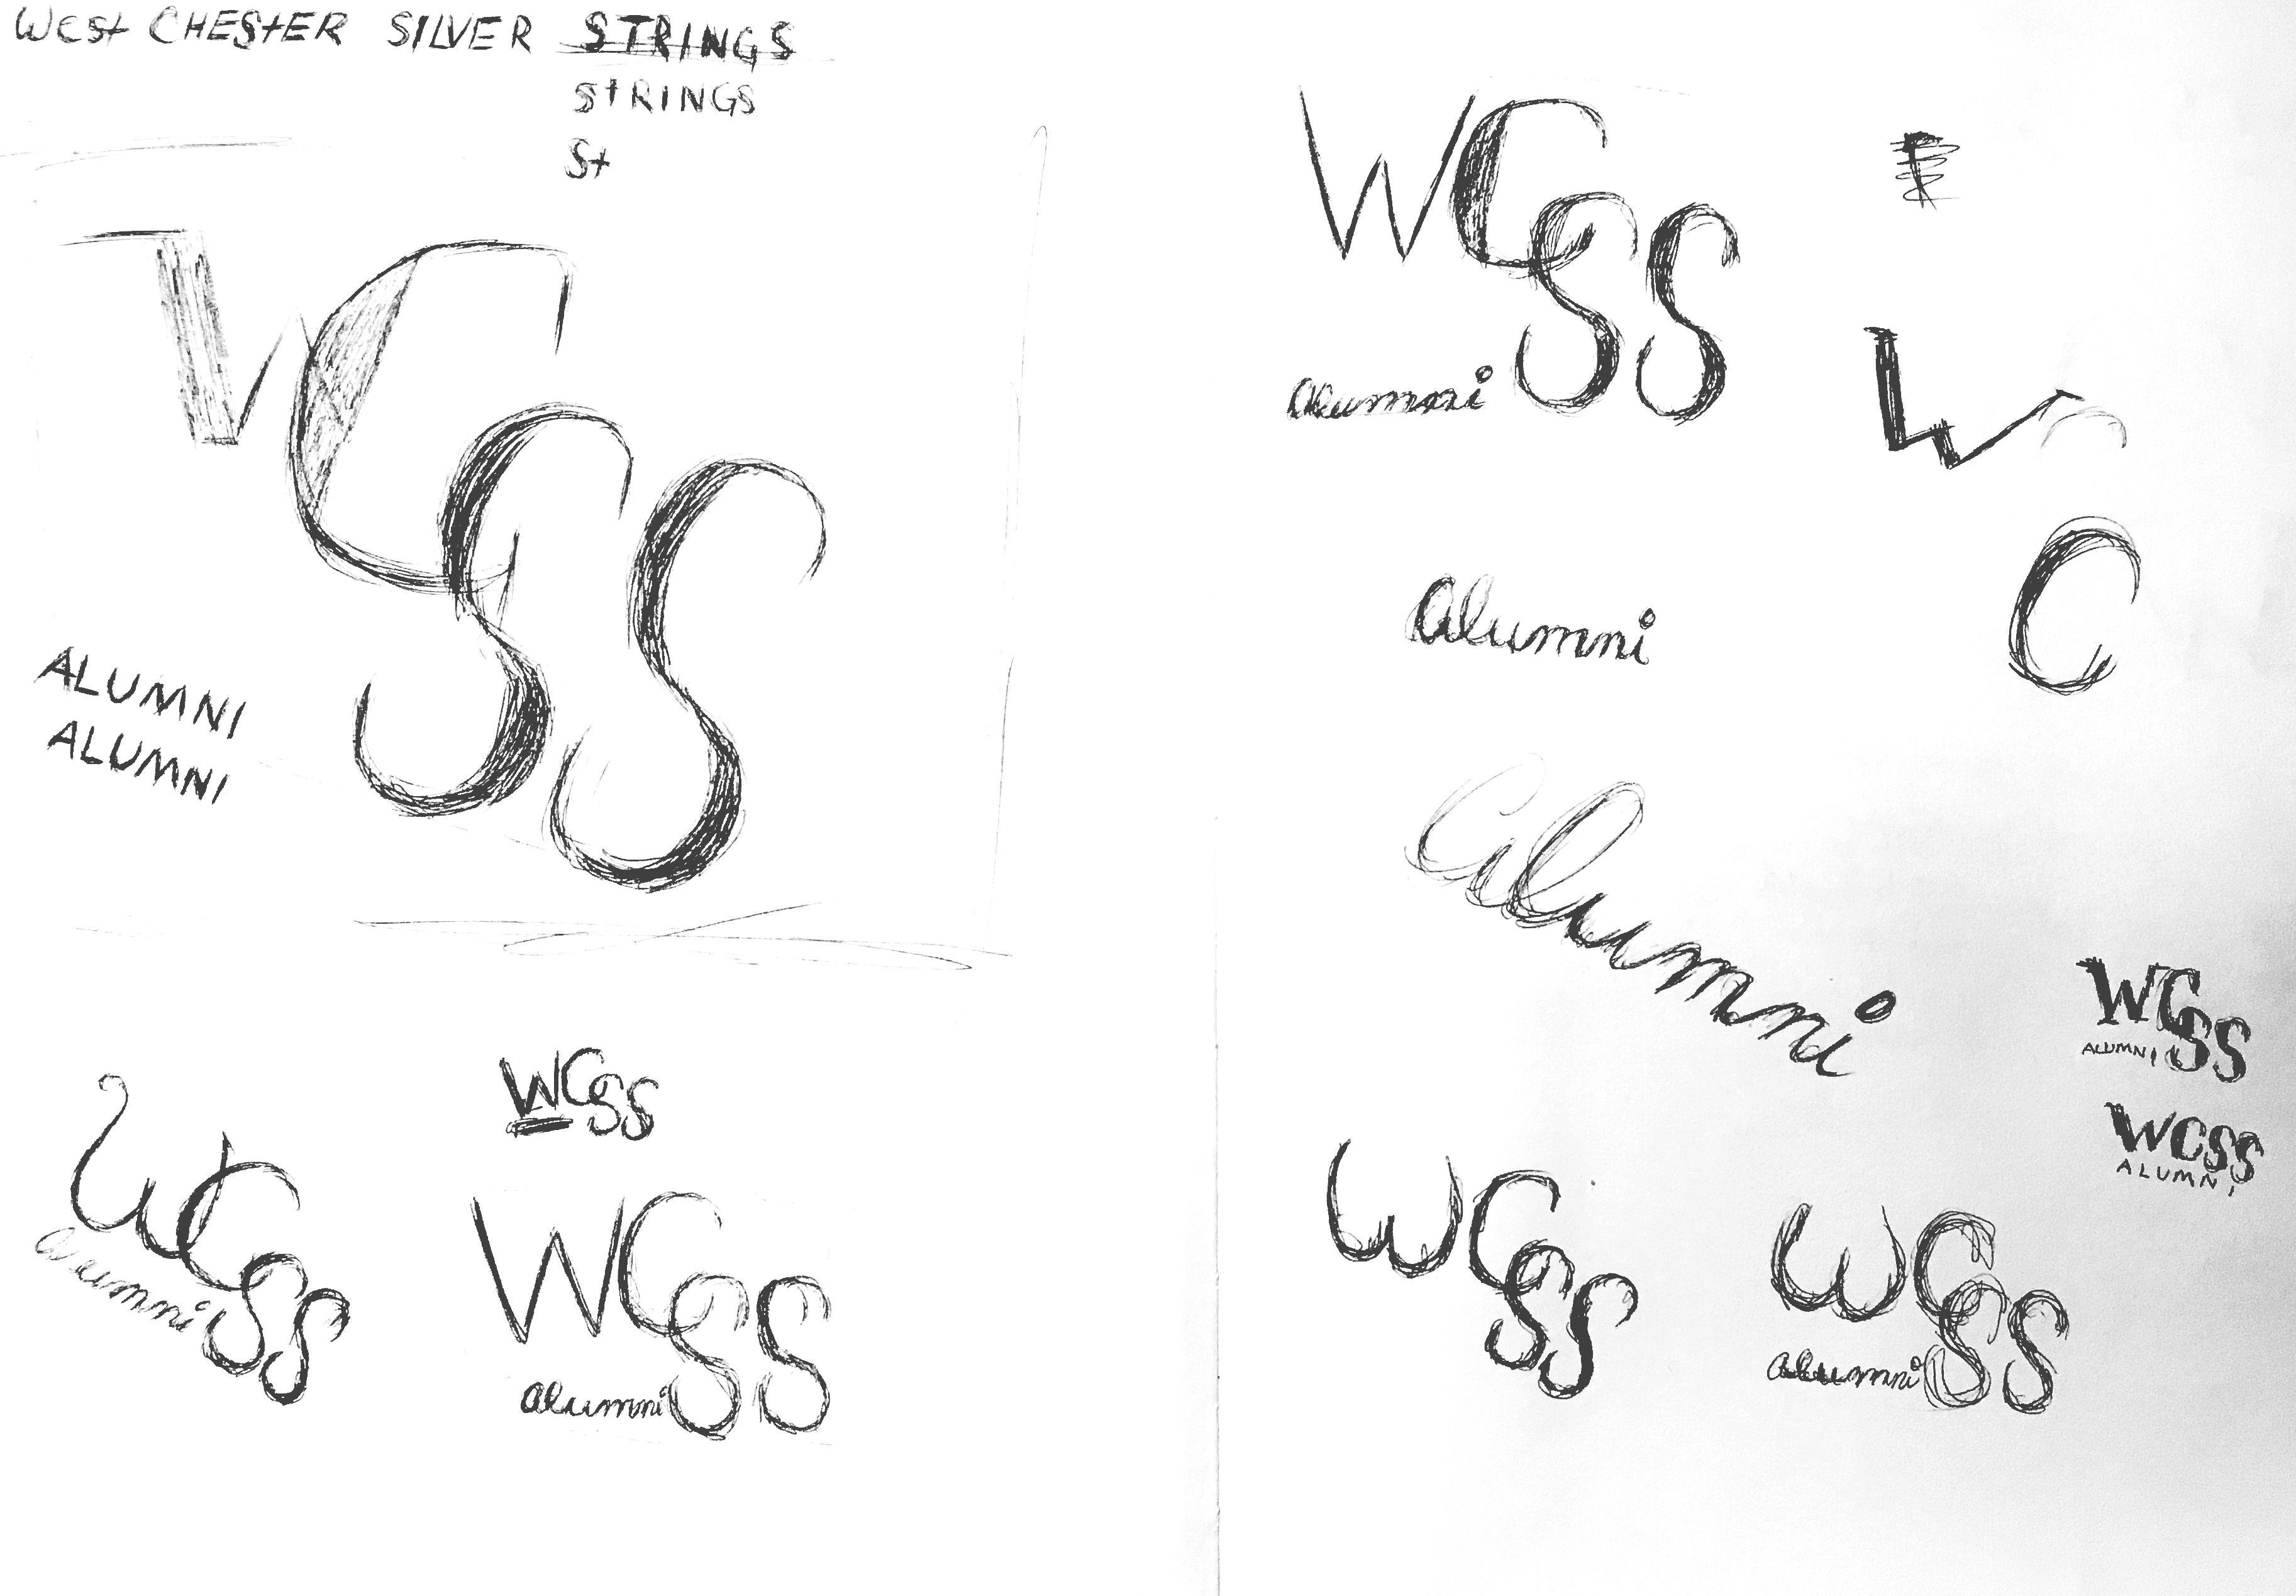 West CHEStER SILVER STRINGS
StRINGS
St
WCSS
ALUMNI
ALUMNI
WCSS
Alumni
WCSS
WCSS
Alumni
WCSS
Alumni
W
Alumni
C
Alumni
WCSS
ALUMNI
WCSS
ALUMNI
WCSS
WCSS
Alumni